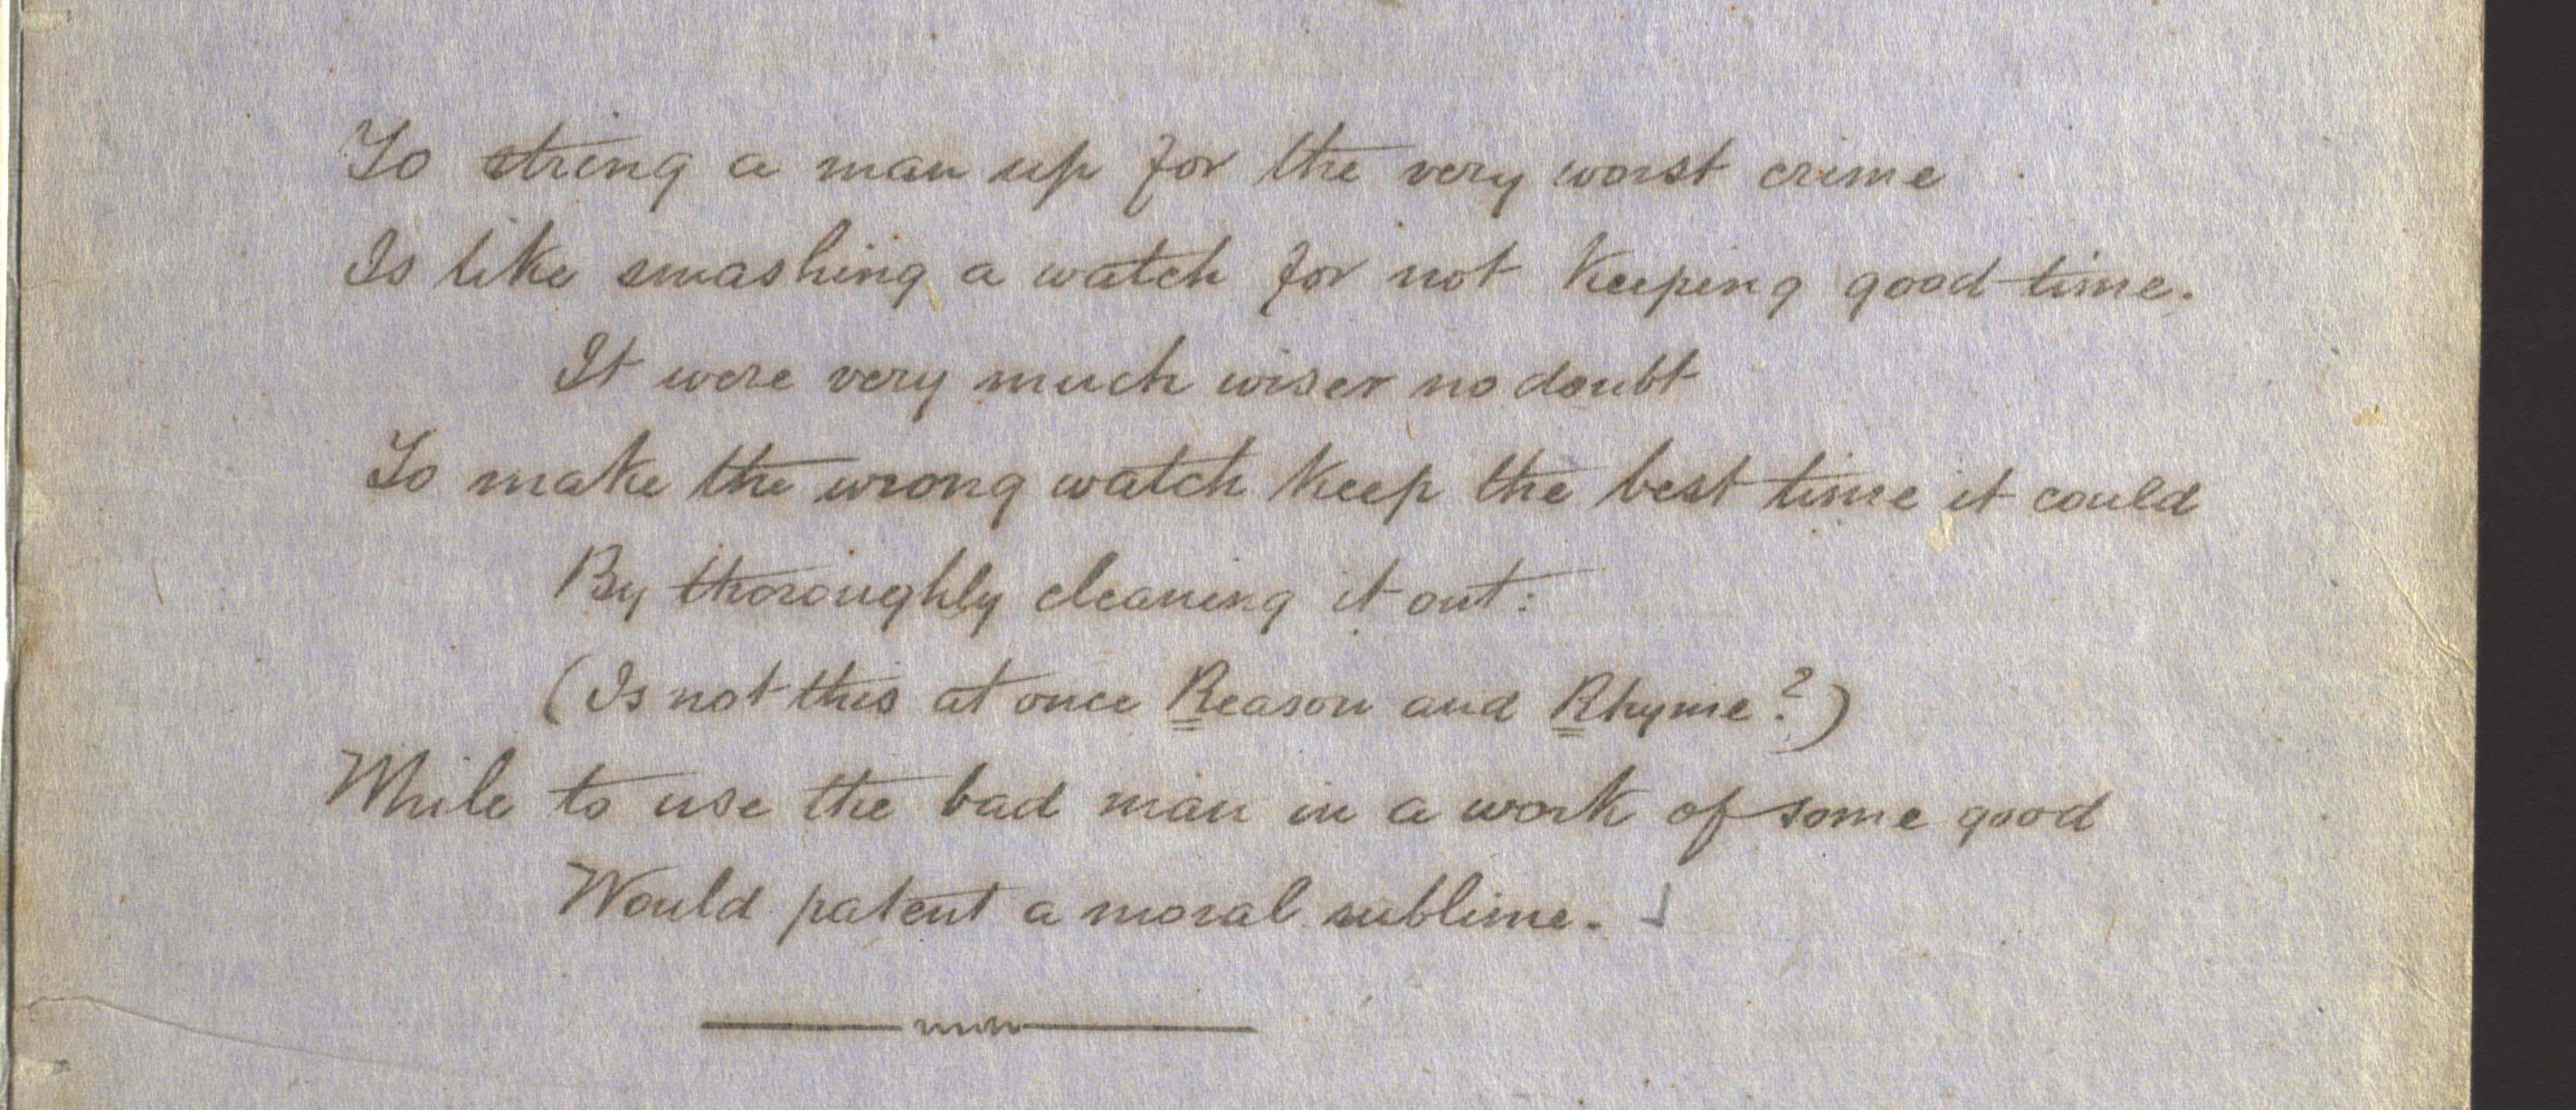 To string a man up for the very worst crime
Is like smashing a watch for not keeping good time.
It were very much wiser no doubt
To make the wrong watch keep the best time it could
By thoroughly cleaning it out:
(Is not this at once Reason and Rhyme?)
While to use the bad man in a work of some good
Would patent a moral sublime.